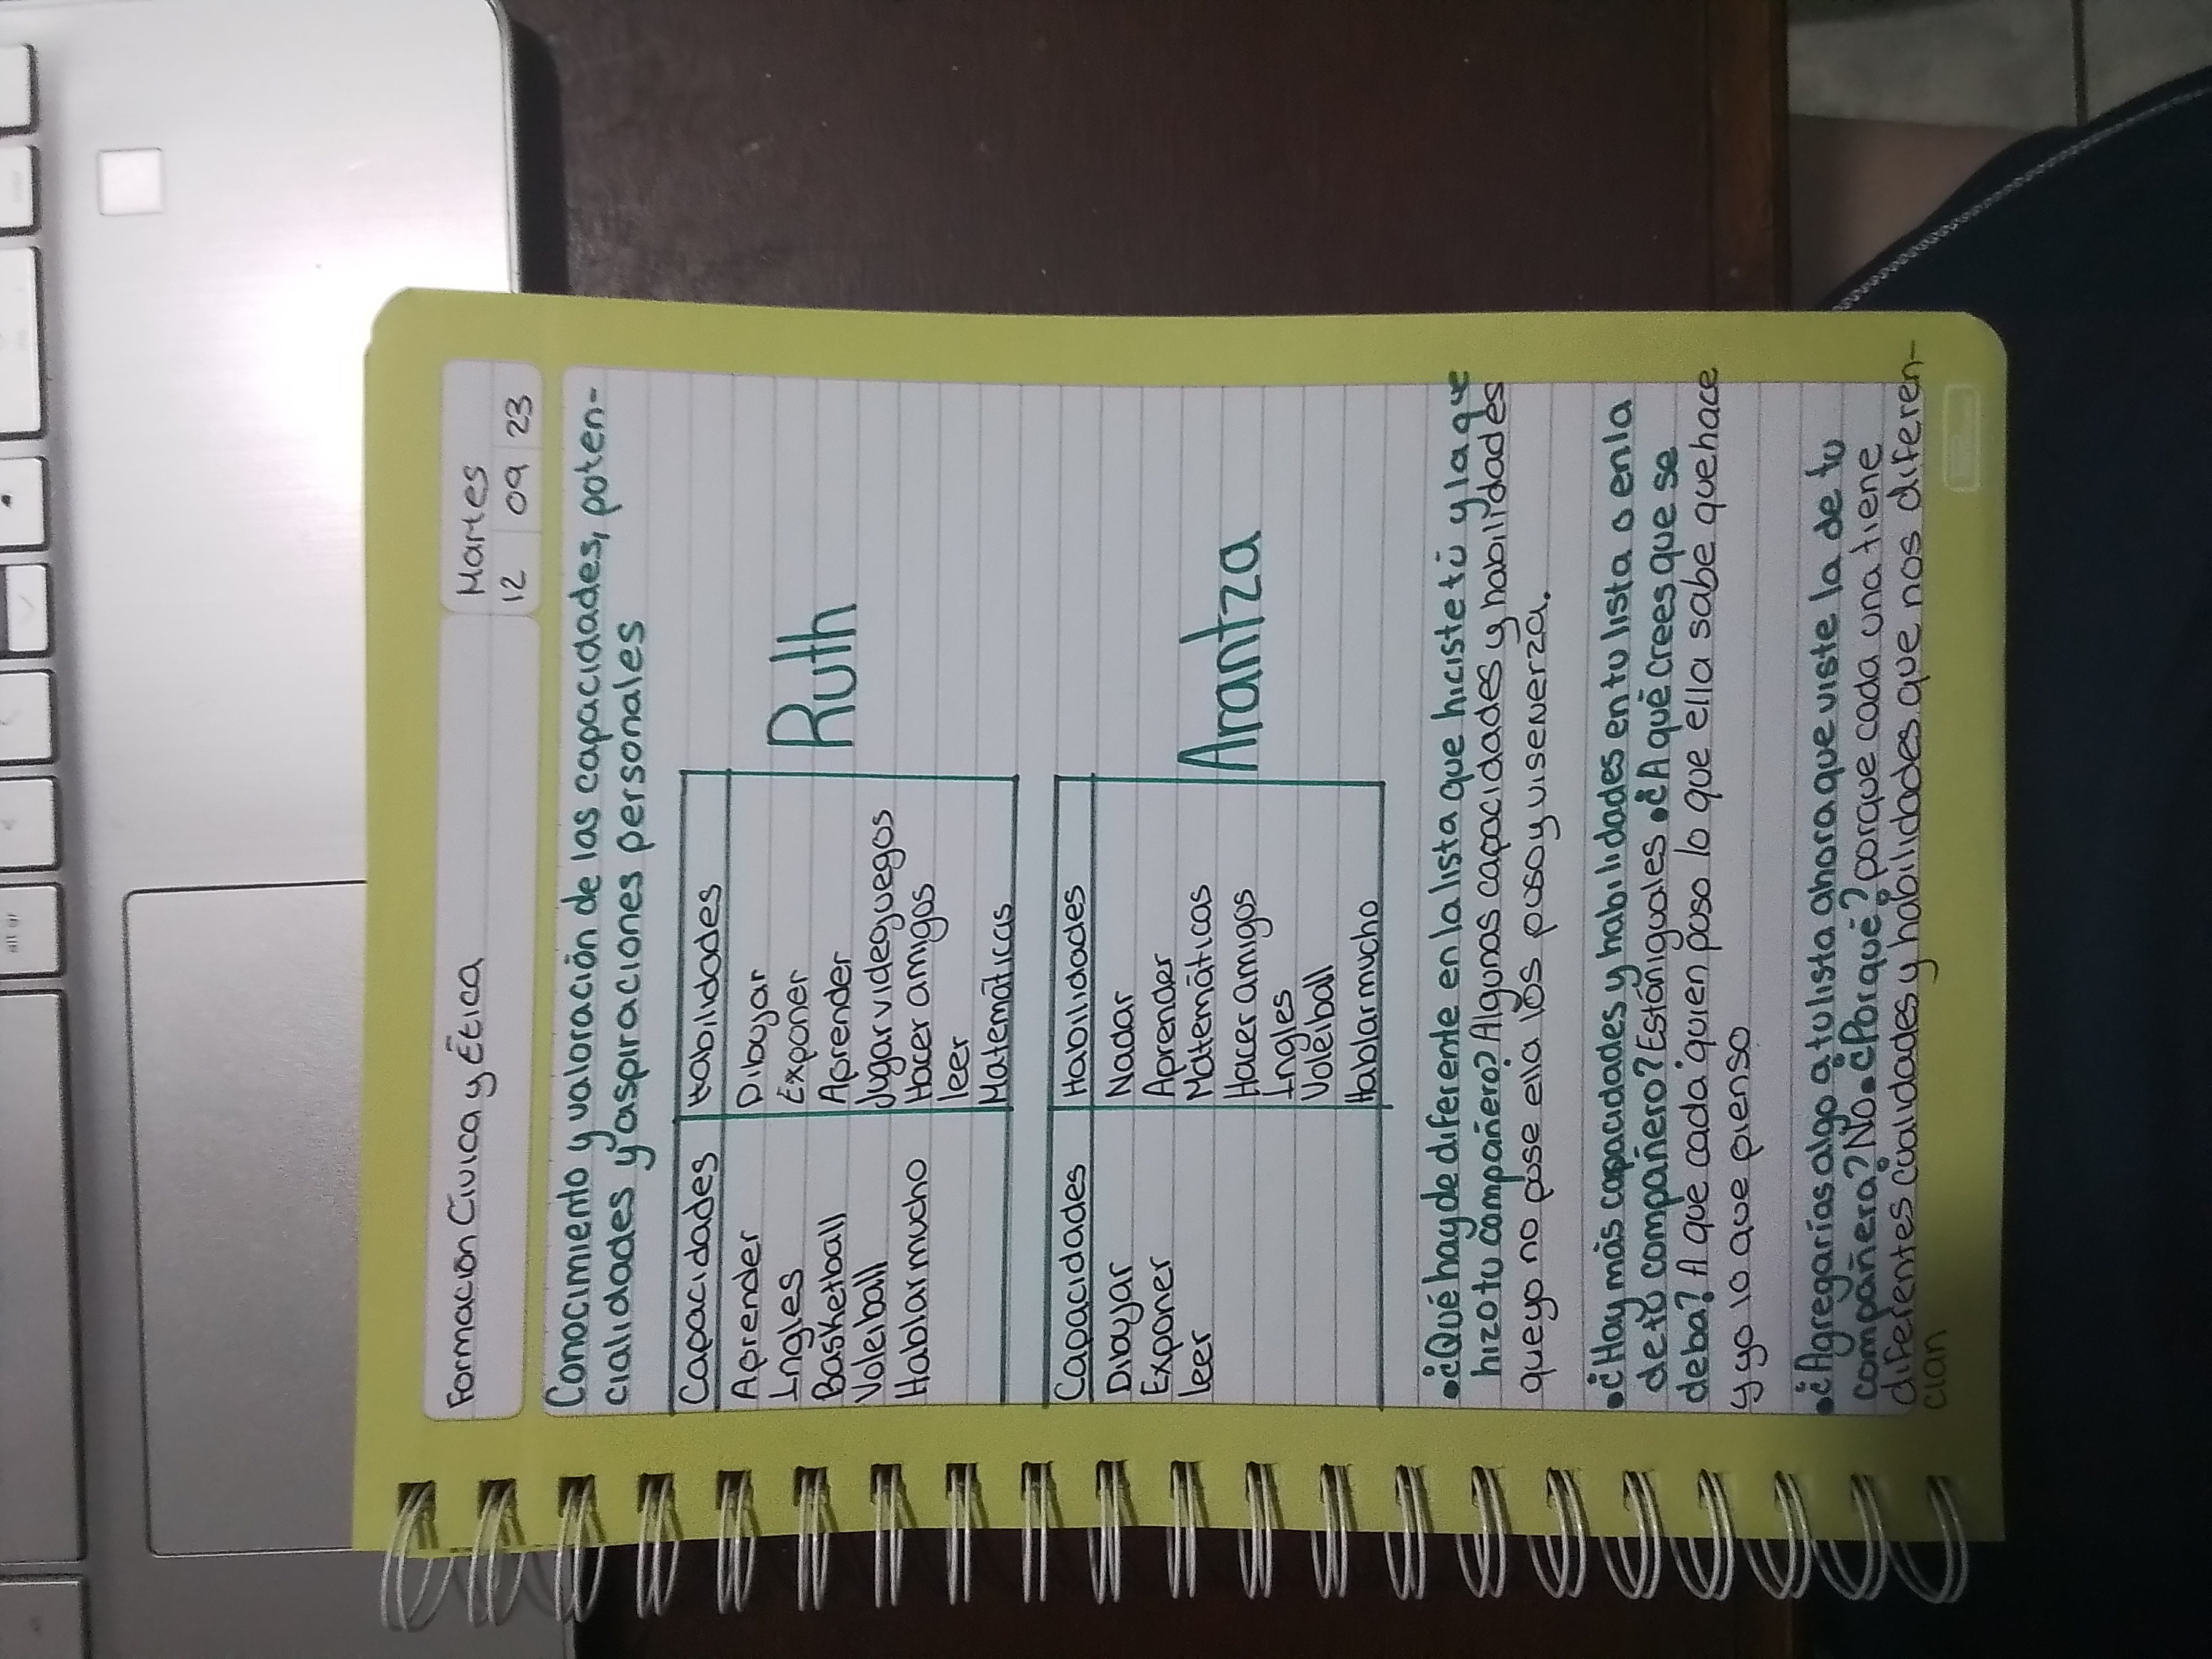 Formación Cívica y Ética
Martes
12 09 23
Conocimiento y valoración de las capacidades, poten-
cialidades y aspiraciones personales
Capacidades Habilidades
Aprender Dibujar
Ingles Exponer
Basketball Aprender
Voleiball Jugar videojuegos
Hablar mucho Hacer amigos
leer
Matemáticas
Ruth
Capacidades Habilidades
Dibujar Nadar
Exponer Aprender
leer Matemáticas
Hacer amigos
Ingles
Voleiball
Hablar mucho
Arantza
•¿Qué hay de diferente en la lista que hiciste tú y la que
hizo tu compañero? Algunas capacidades y habilidades
que yo no puse ella los puso y visenerza.
•¿Hay más capacidades y habilidades en tu lista o en la
de tú compañero? Están iguales •¿A qué crees que se
deba? A que cada quien puso lo que ella sabe que hace
y yo lo que pienso
•¿Agregarías algo a tu lista ahora que viste la de tu
compañera? No •¿Por qué? porque cada una tiene
diferentes cualidades y habilidades que nos diferen-
cian